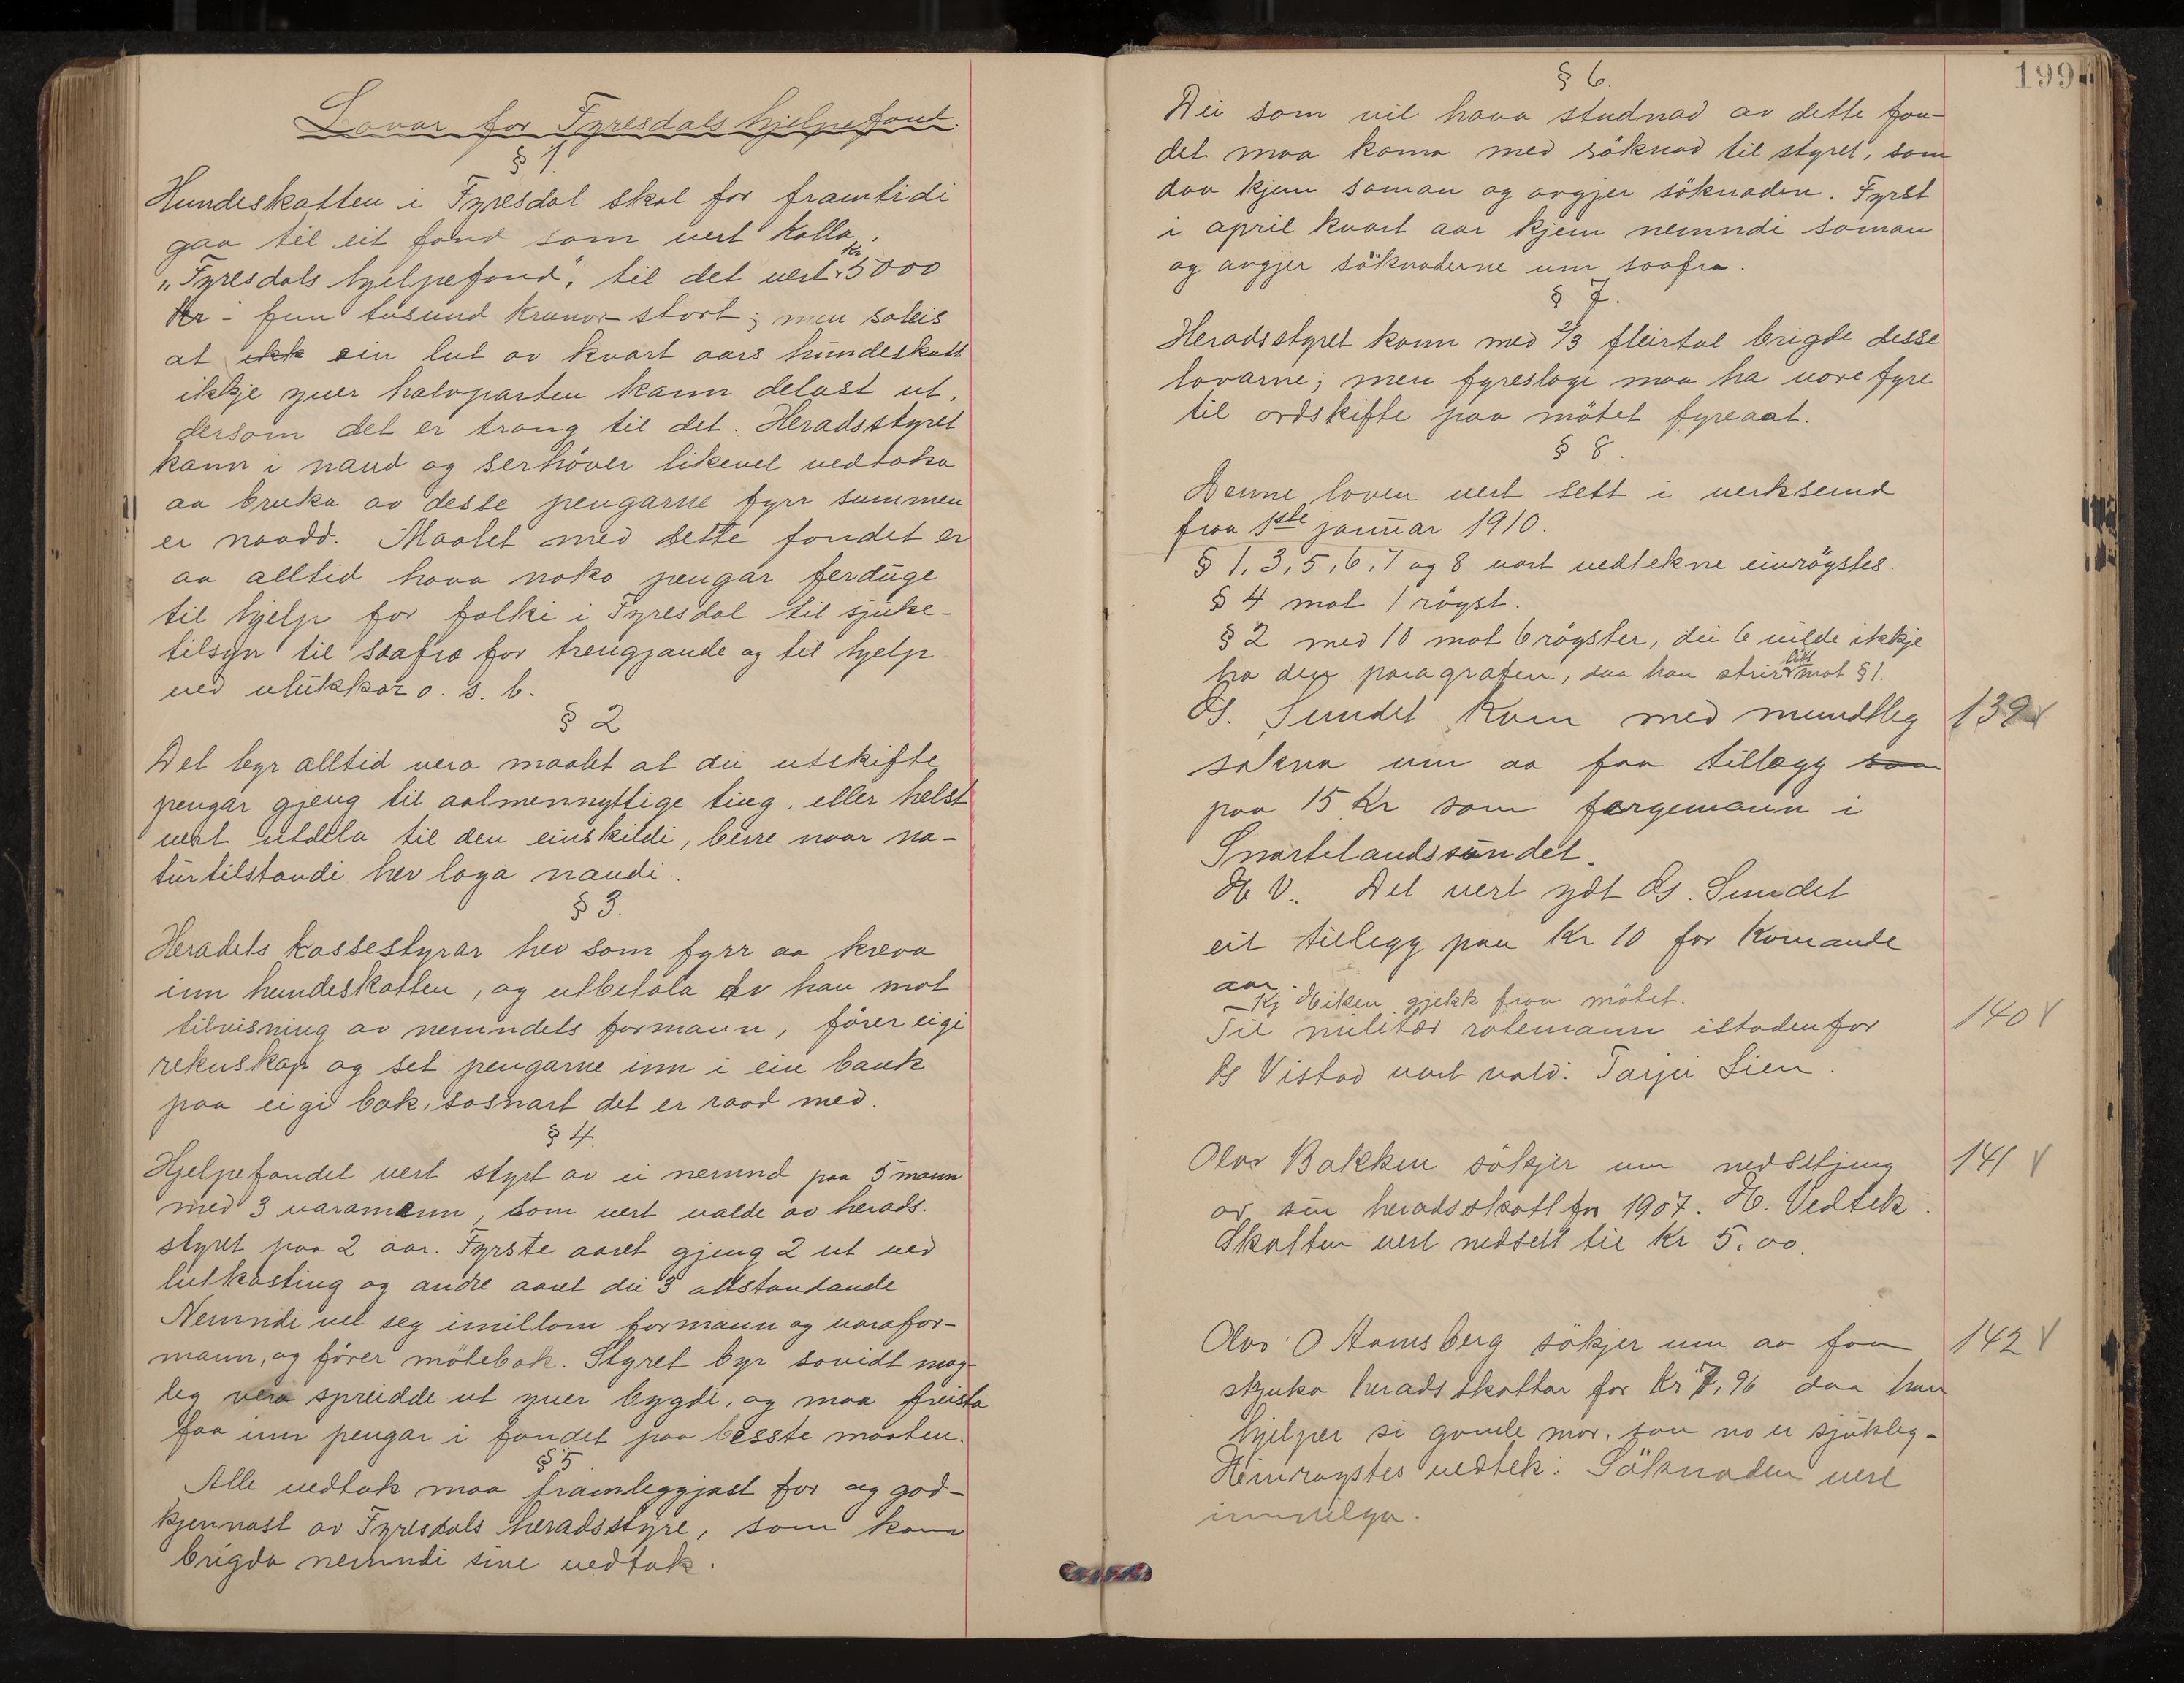 Lovar for Fyresdals hjelpefond.
§ 1.
Hundeskatten i Fyresdal skal for framtidi
gaa til eit fond som vert kalla
„Fyresdals hjelpefond", til det vert Kr 5000
Kr - fem tusund krunor stort; men soleis
at ikk ein lut av kvart aars hundeskatt
ikkje yver halvparten kann delast ut,
dersom det er trong til det. Heradsstyret
kann i naud og serhöver likevel vedtaka
aa bruka av desse pengarne fyrr summen
er naadd. Maalet med dette fondet er
aa alltid hava noko pengar ferduge
til hjelp for folki i Fyresdal til sjuke-
tilsyn til saafro for trengjande og til hjelp
ved ulukkar o. s. b.
§ 2
Det byr alltid vera maalet at dei utskifte
pengar gjeng til aalmennyttige ting, eller helst
vert utdela til den einskildi, berre naar na-
turtilstandi hev laga naudi.
§ 3.
Heradets kassestyrar hev som fyrr aa kreva
inn hundeskatten, og utbetala av han mot
tilvisning av nemndets formann, förer eigi
rekneskap og set pengarne inn i ein bank
paa eigi bok, sosnart det er raad med.
§ 4.
Hjelpefondet vert styrt av ei nemnd paa 5 mann
med 3 varamenn, som vert valde av herads-
styret paa 2 aar. Fyrste aaret gjeng 2 ut ved
lutkasting og andre aaret dei 3 attstandande
Nemndi vel seg imillom formann og varafor-
mann, og förer mötebok. Styret byr sovidt mog-
leg vera spreidde ut yver bygdi, og maa freista
faa inn pengar i fondet paa besste maaten.
§ 5
Alle vedtak maa framleggjast for og god-
kjennast av Fyresdals heradsstyre, som kann
brigda nemndi sine vedtak.
199
§ 6.
Dei som vil hava studnad av dette fon-
det maa koma med söknad til styret, som
daa kjem saman og avgjer söknaden. Fyrst
i april kvart aar kjem nemndi saman
og avgjer söknaderne um saafro.
§ 7.
Heradsstyret kann med 2/3 fleirtal brigde desse
lovarne; men fyreslogi maa ha vore fyre
til ordskifte paa mötet fyreaat.
§ 8.
Denne loven vert sett i verksemd
fraa 1ste januar 1910.
§ 1, 3, 5, 6, 7 og 8 vart vedtekne einröystes.
§ 4 mot 1 röyst.
§ 2 med 10 mot 6 röyster, dei 6 vilde ikkje
ha den paragrafen, daa han strir likt mot § 1.
Sundet kom med mundtleg 139
sokna um aa faa tillegg som
paa 15 Kr som fergemann i
Snartelandssundet.
H V. Det vert ydt Sundet
eit tillegg paa Kr 10 for komande
aar.
Kj Heiken gjekk fraa mötet.
Til militær rotemann istadenfor 140
Vistad vart vald: Tarjei Lien.
Olav Bakken sökjer um nedsetjing 141
av sin heradsskatt for 1907. H. Vedtek:
Skatten vert nedsett til kr 5.00.
Olav O Hamsberg sökjer um aa faa 142
stryka heradsskattar for Kr 7,96 daa han
hjelper si gamle mor, som no er sjukleg-
Heinröystes vedtek: Söknaden vert
innvilga.